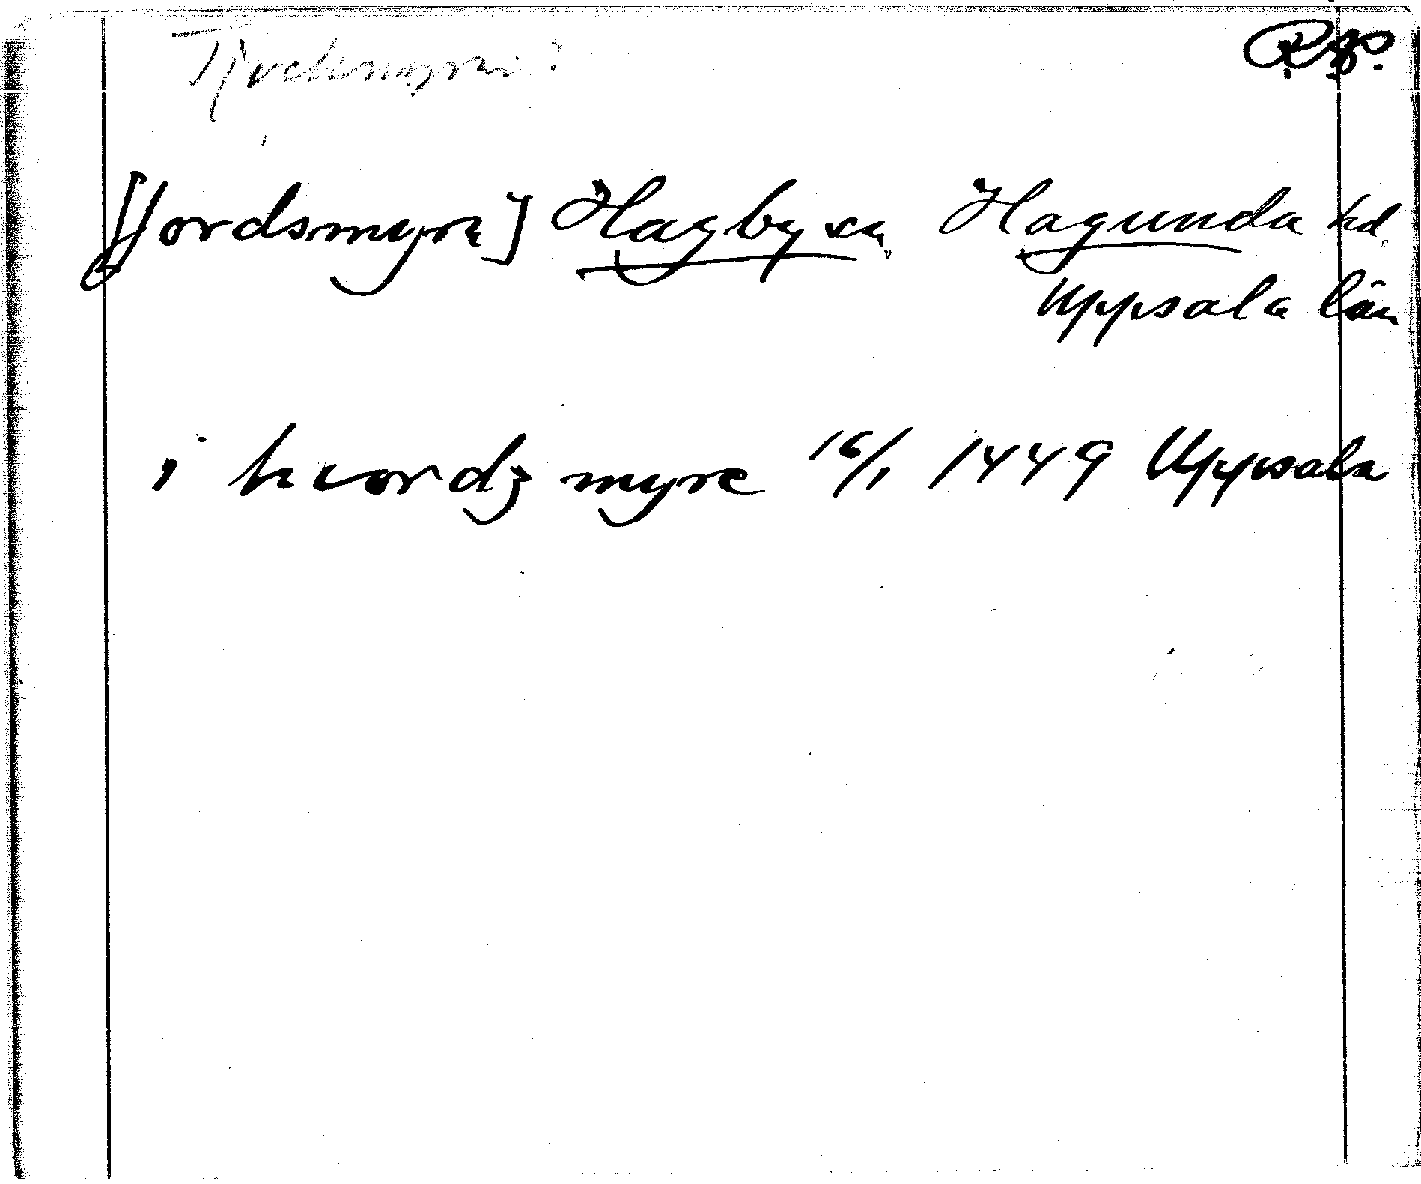 [Jordsmyra] Hagby sn Hagunda hd
Uppsala län
i hvordz myre 16/1 1449 Uppsala